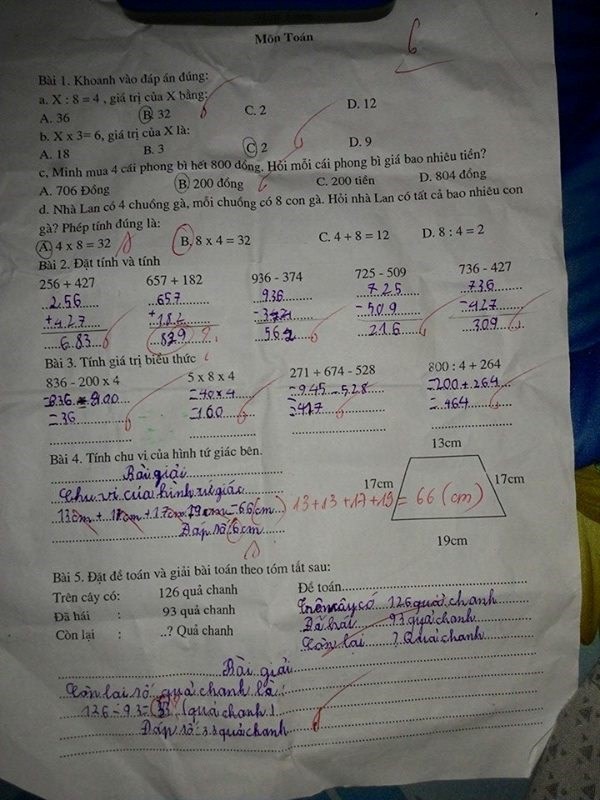 Môn Toán
6
Bài 1. Khoanh vào đáp án đúng:
a. X : 8 = 4 , giá trị của X bằng:
A. 36 B. 32 C. 2 D. 12
b. X x 3= 6, giá trị của X là:
A. 18 B. 3 C. 2 D. 9
c, Minh mua 4 cái phong bì hết 800 đồng. Hỏi mỗi cái phong bì giá bao nhiêu tiền?
A. 706 Đồng B. 200 đồng C. 200 tiền D. 804 đồng
d. Nhà Lan có 4 chuồng gà, mỗi chuồng có 8 con gà. Hỏi nhà Lan có tất cả bao nhiêu con
gà? Phép tính đúng là:
A. 4 x 8 = 32 B. 8 x 4 = 32 C. 4 + 8 = 12 D. 8 : 4 = 2
Bài 2. Đặt tính và tính
256 + 427 657 + 182 936 - 374 725 - 509 736 - 427
256 657 936 725 736
+427 +182 -374 -509 -427
683 839 562 216 309
Bài 3. Tính giá trị biểu thức
836 - 200 x 4 5 x 8 x 4 271 + 674 - 528 800 : 4 + 264
=836 - 800 =40 x 4 =945 - 528 =200 + 264
=36 =160 =417 =464
Bài 4. Tính chu vi của hình tứ giác bên.
13cm
Bài giải
17cm 17cm
Chu vi của hình tứ giác
13cm + 17cm + 17cm 19cm = 66(cm) 13+13+17+19 = 66 (cm)
Đáp số 6cm
19cm
Bài 5. Đặt đề toán và giải bài toán theo tóm tắt sau:
Trên cây có: 126 quả chanh
Đã hái : 93 quả chanh
Còn lại : ..? Quả chanh
Đề toán
Trên cây có 126 quả chanh
Đã hái 93 quả chanh
Còn lại ? Quả chanh
Bài giải
Còn lai số quả chanh là:
126 - 93 = 33 (quả chanh)
Đáp số: 33 quả chanh